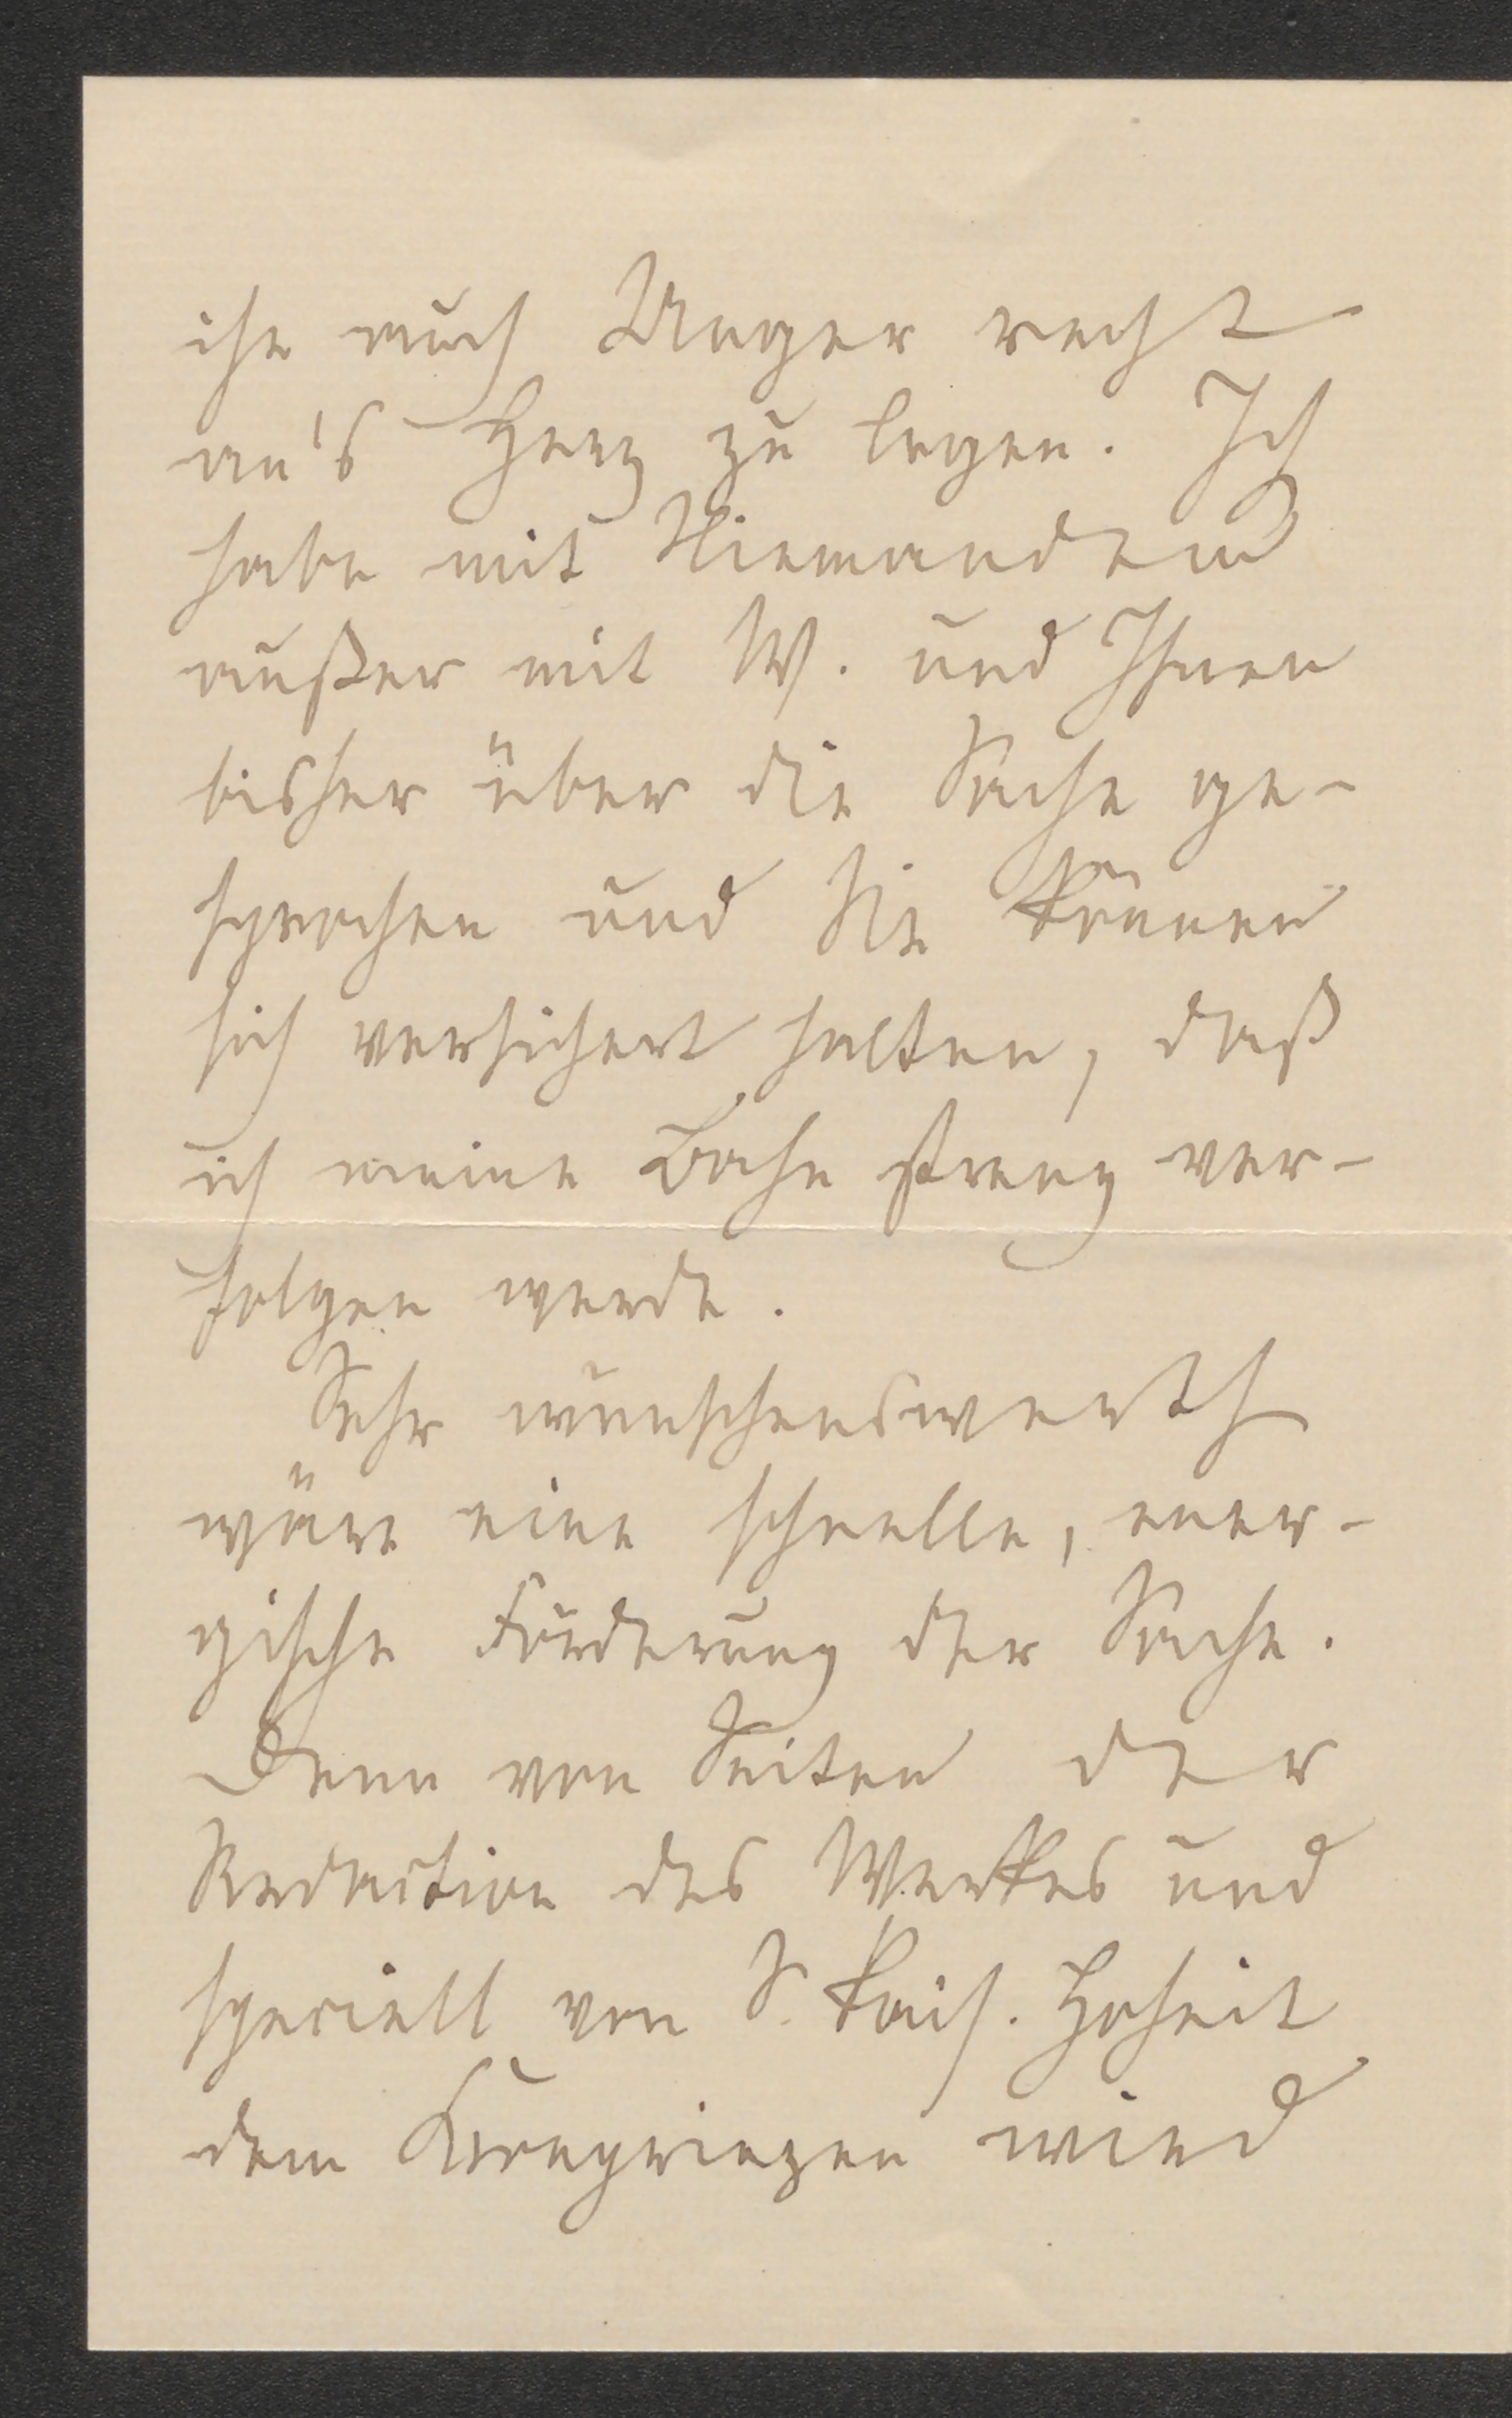 ihn auch Unger recht
an's Herz zu legen. Ich
habe mit Niemandem
außer mit W. und Ihnen
bisher über die Sache ge-
sprochen und Sie können
sich versichert halten, daß
ich meine Bahn streng ver-
folgen werde.
Sehr wünschenswerth
wäre eine schnelle, ener-
gische Förderung der Sache.
Denn von Seiten der
Redaction des Werkes und
speciell von S. kais. Hoheit
dem Kronprinzen wird